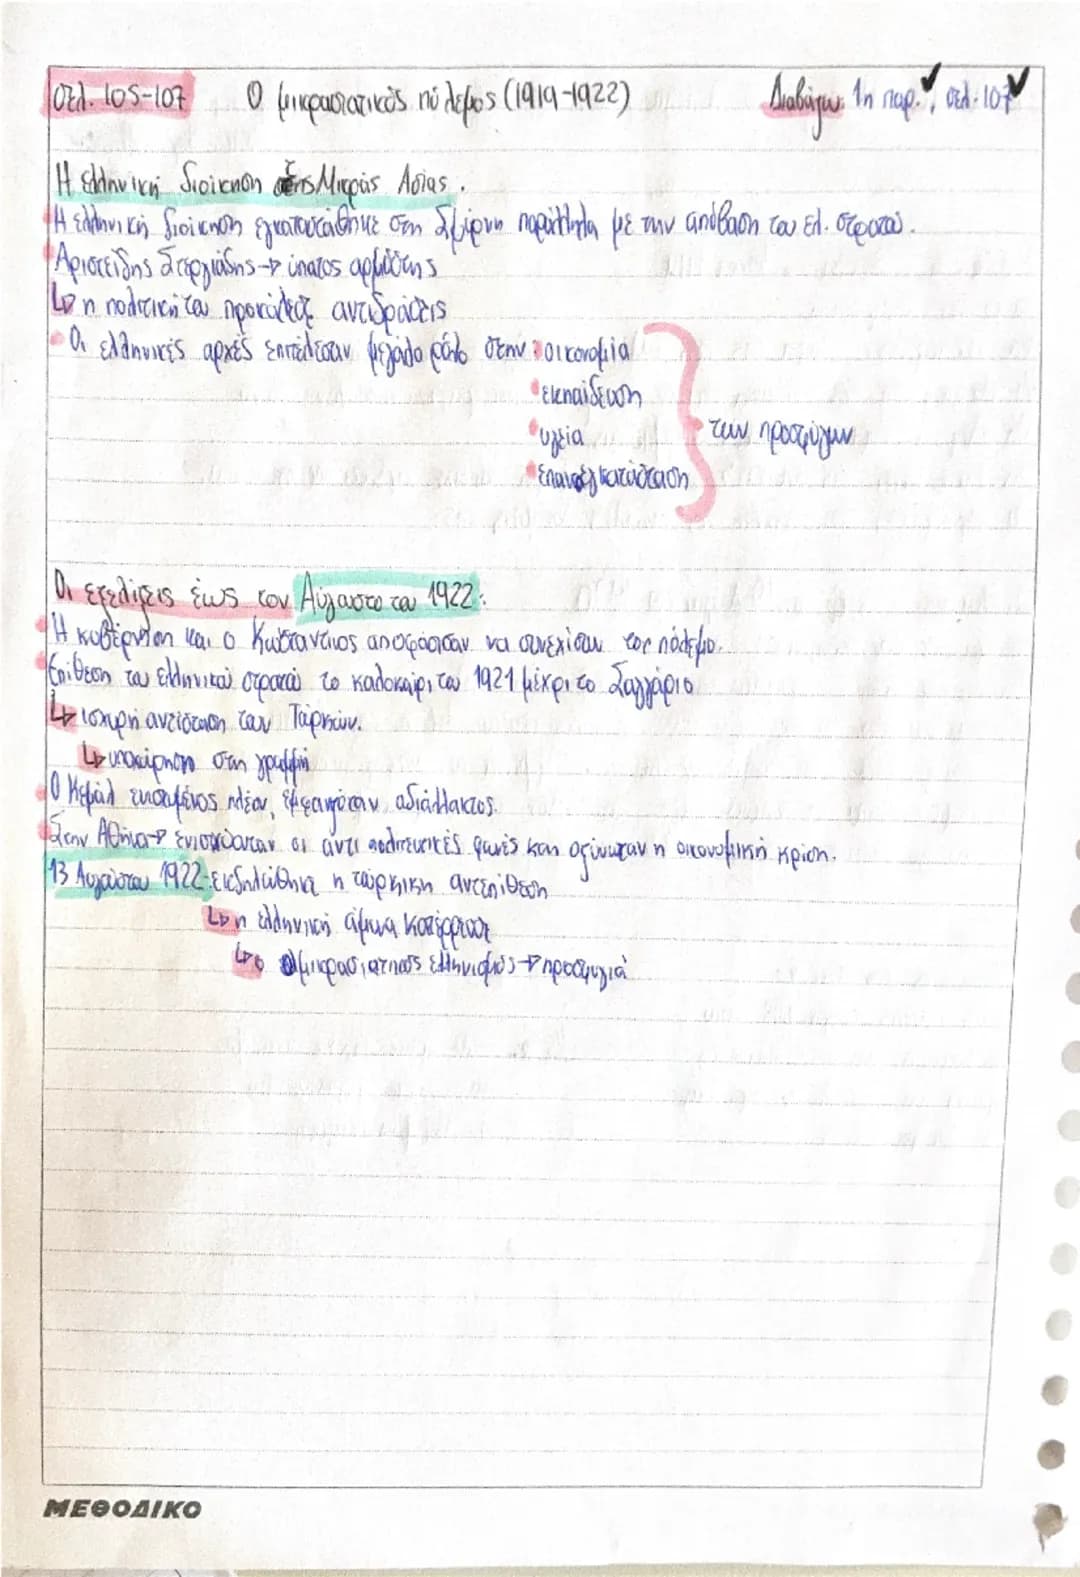 σελ. 105-107 Ο μικρασιατικός πόλεμος (1919-1922) Διαβάζω: 1η παρ. ✓, σελ. 107 ✓
Η ελληνική διοίκηση της Μικράς Ασίας.
Η ελληνική διοίκηση εγκαταστάθηκε στη Σμύρνη παράλληλα με την απόβαση του ελ. στρατού.
Αριστείδης Στεργιάδης → ύπατος αρμοστής
↳ η πολιτική του προκάλεσε αντιδράσεις
• Οι ελληνικές αρχές επιτέλεσαν μεγάλο ρόλο στην: οικονομία
• εκπαίδευση
• υγεία } των προσφύγων
• επανεγκατάσταση
Οι εξελίξεις έως τον Αύγουστο του 1922:
• Η κυβέρνηση και ο Κωσταντίνος αποφάσισαν να συνεχίσουν τον πόλεμο.
• Επίθεση του ελληνικού στρατού το καλοκαίρι του 1921 μέχρι το Σαγγάριο
↳ ισχυρή αντίσταση των Τούρκων.
↳ υποχώρηση στη γραμμή
• Ο Κεμάλ ενισχυμένος πλέον, εμφανιζόταν αδιάλλακτος.
• Στην Αθήνα → ενισχύονταν οι αντιπολιτευτικές φωνές και οξύνωταν η οικονομική κρίση.
13 Αυγούστου 1922: εκδηλώθηκε η τουρκική αντεπίθεση
↳ η ελληνική άμυνα κατέρρευσε
↳ ο μικρασιατικός ελληνισμός → προσφυγιά
ΜΕΘΟΔΙΚΟ